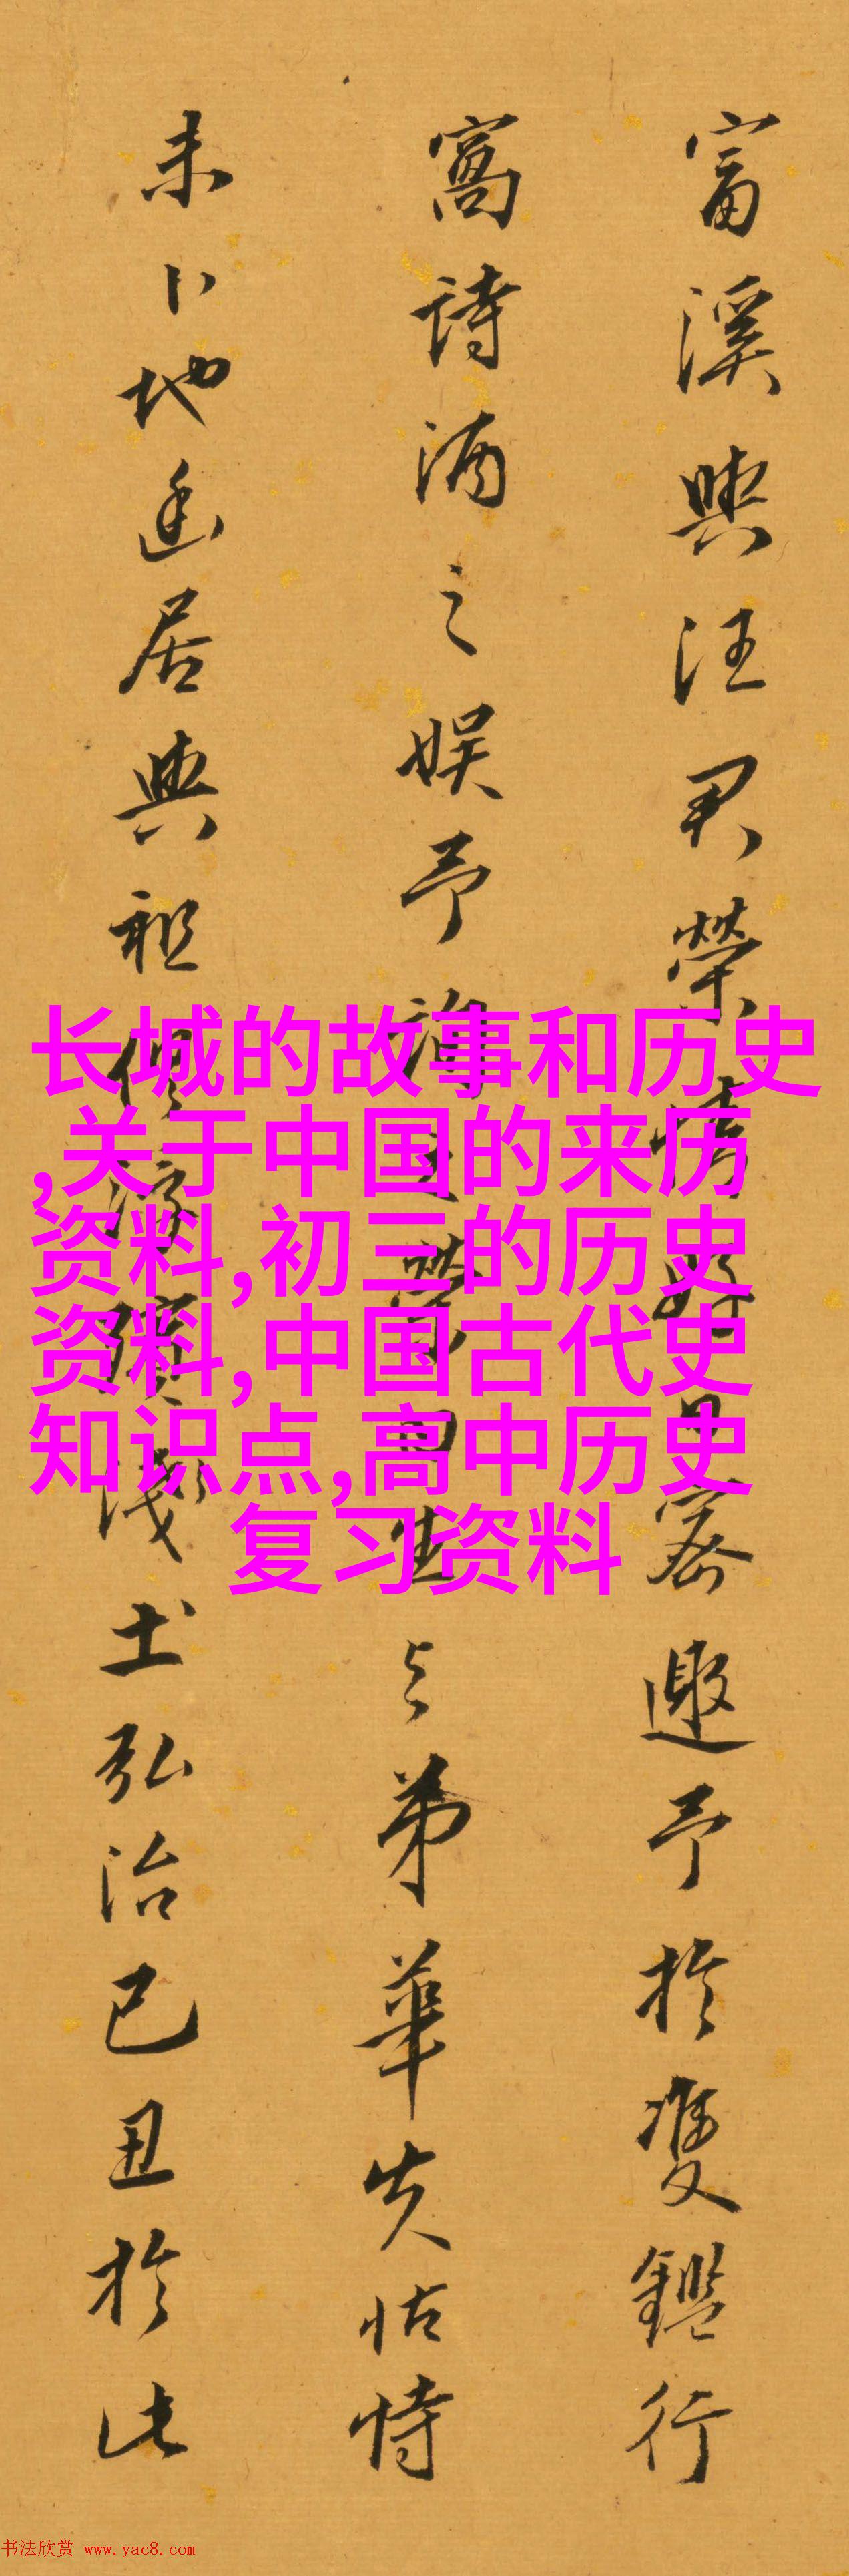 富溪與汪君榮
客邀予於雙鑑行
窩詩酒之娱予
生
弟華失怙恃
未卜地
居與祖
土弘治己丑於此
长城的故事和历史
,关于中国的来历
资料,初三的历史
资料,中国古代史
知识点,高中历史
复习资料
书法欣赏 www.yac8.com